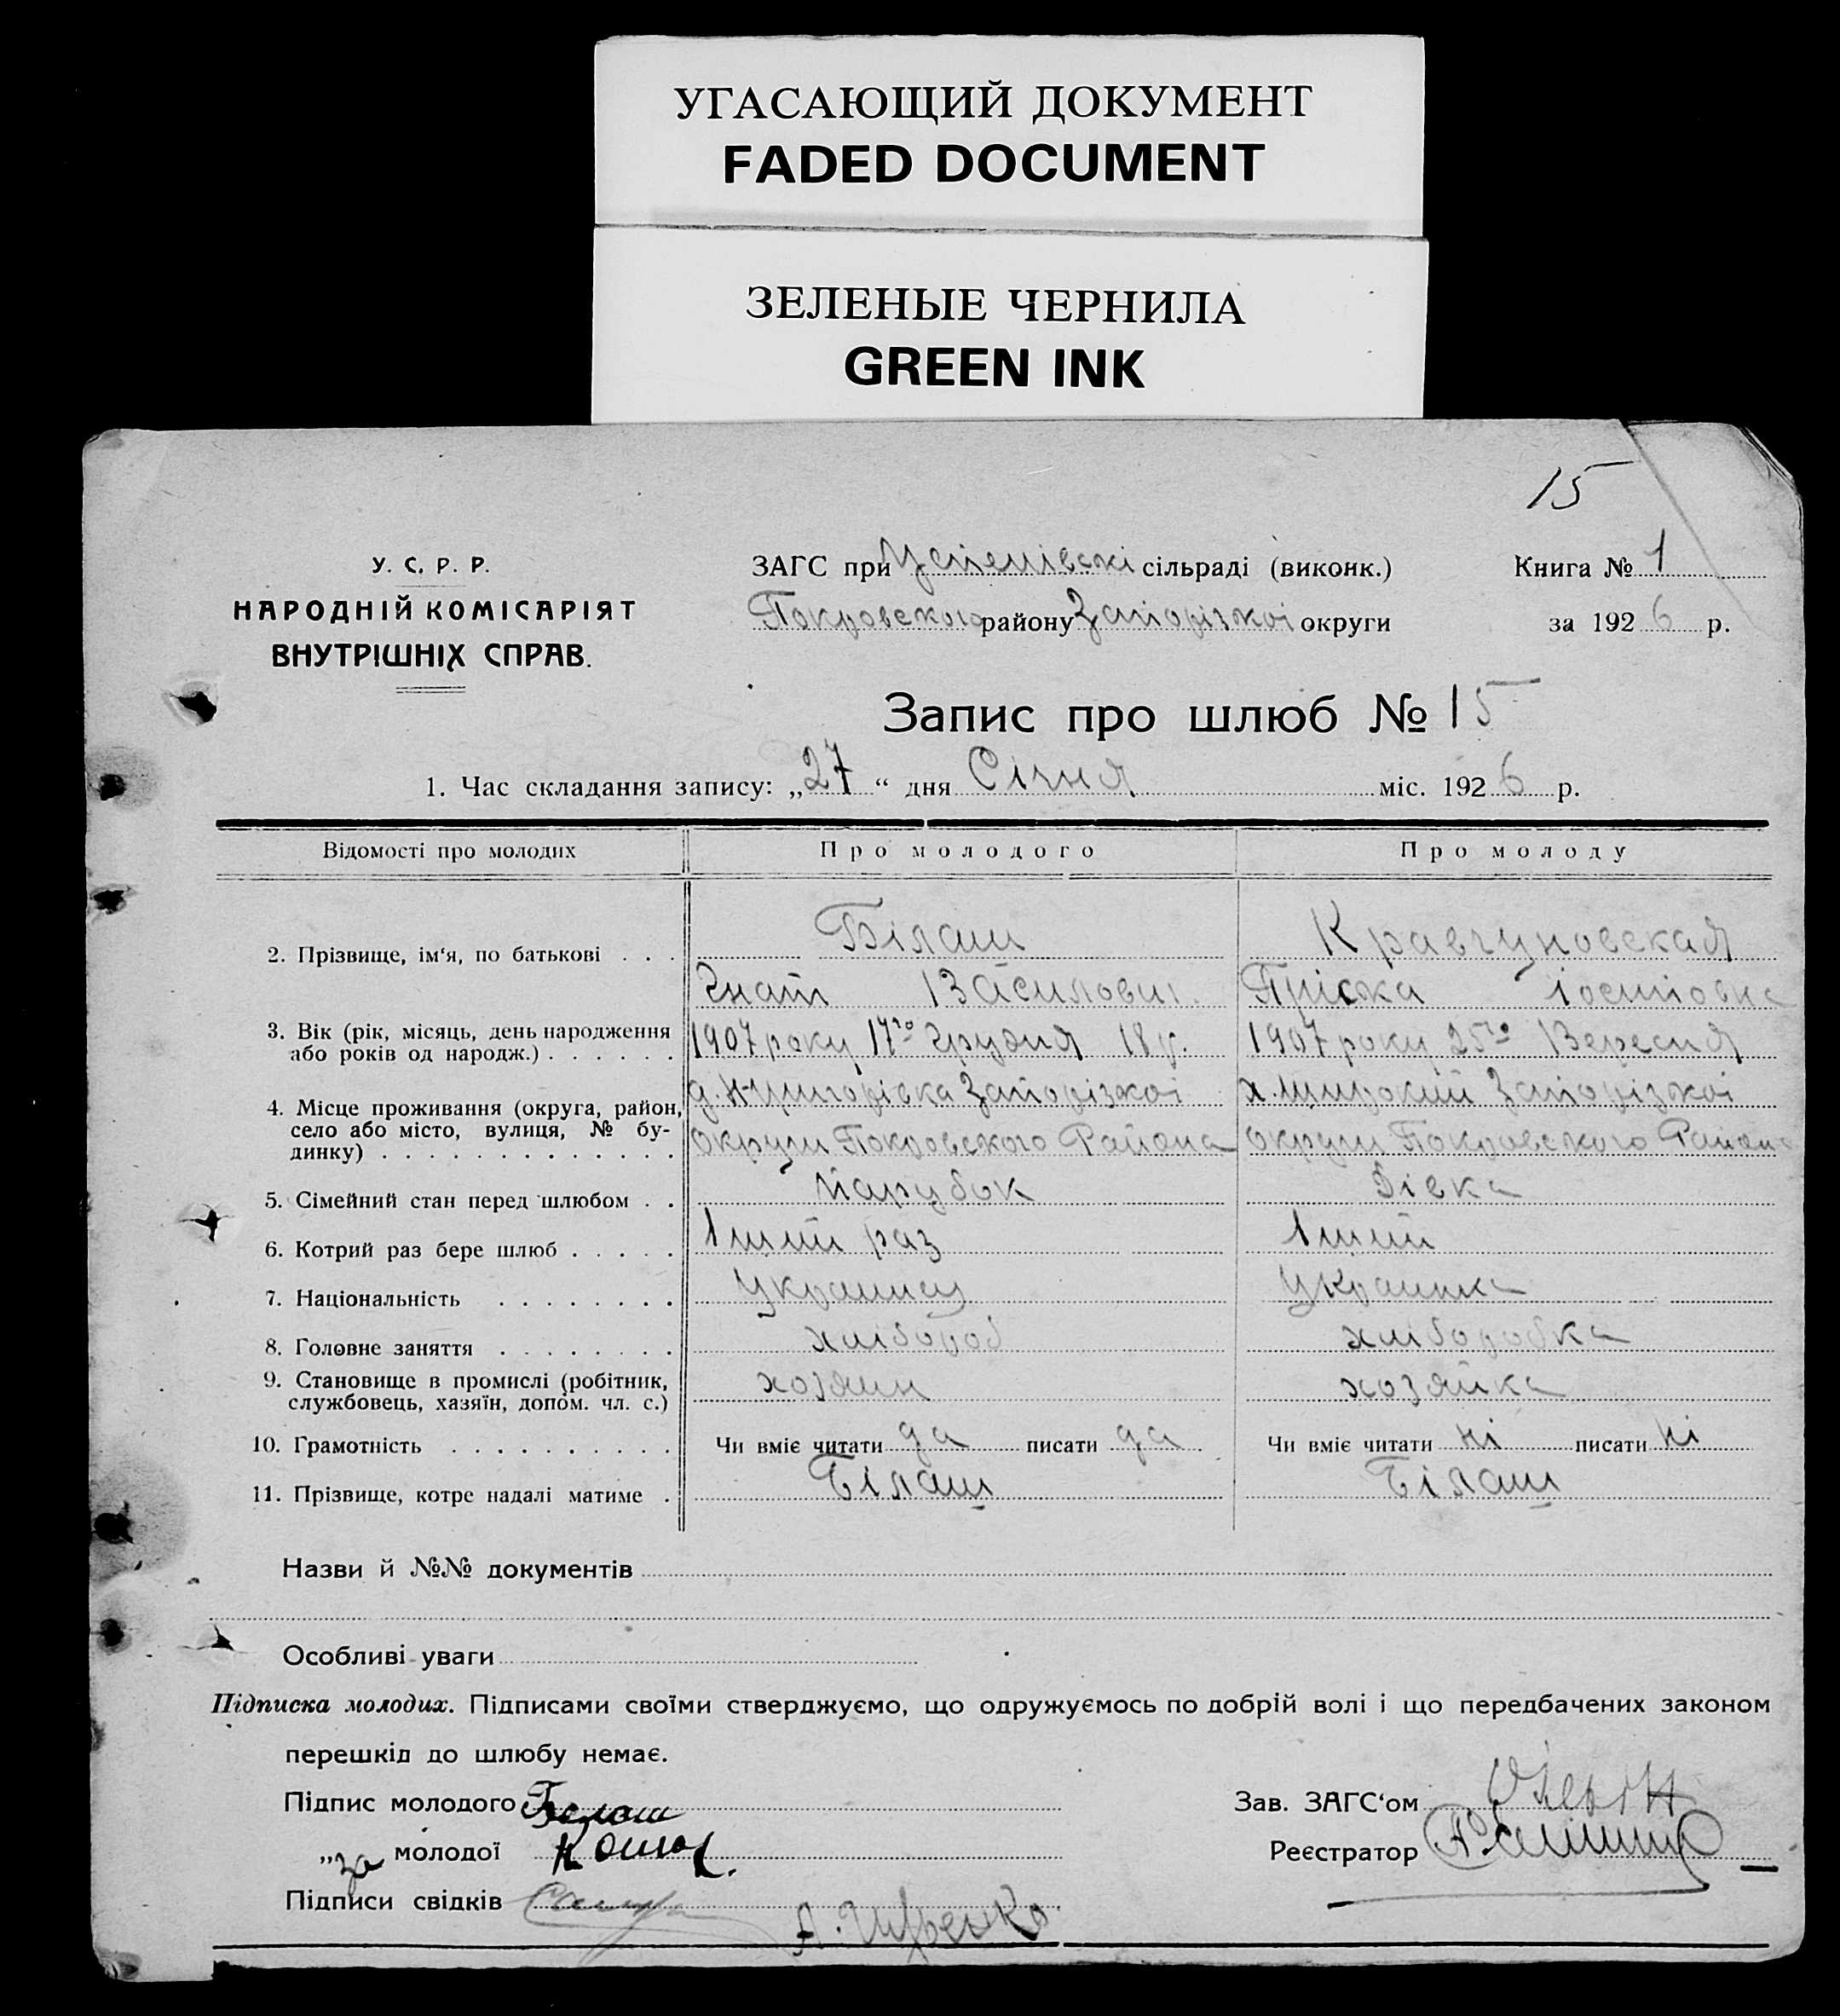 УГАСАЮЩИЙ ДОКУМЕНТ
FADED DOCUMENT
ЗЕЛЕНЫЕ ЧЕРНИЛА
GREEN INK
15
У. С. Р. Р.
НАРОДНІЙ КОМІСАРІЯТ
ВНУТРІШНІХ СПРАВ.
ЗАГС при Успенівскі сільраді (виконк.)
Покровского району Запорізкоі округи
Книга № 1
за 1926 р.
Запис про шлюб № 15
1. Час складання запису: „27“ дня Січня міс. 1926 р.
Відомості про молодих Про молодого Про молоду
2. Прізвище, ім‘я, по батькові . . . Білаш Кравчуновская
Гнат Василович. Пріска
3. Вік (рік, місяць, день народження 1907 року 17го Грудня 18 р. 1907 року 25го Вересня
або років од народж.) . . . . . .
4. Місце проживання (округа, район, Запорізкоі х. Широкий Запорізкоі
село або місто, вулиця, № бу- округи Покровского Района округи Покровского Района
динку) . . . . . . . . . . . . .
5. Сімейний стан перед шлюбом . . Парубок Дівка
6. Котрий раз бере шлюб . . . . . 1ший раз 1ший
7. Національність . . . . . . . . Украинец Украинка
8. Головне заняття . . . . . . . . хлібороб хліборобка
9. Становище в промислі (робітник, хозяин хозяйка
службовець, хазяїн, допом. чл. с.)
10. Грамотність . . . . . . . . . . Чи вміє читати да писати да Чи вміє читати ні писати ні
11. Прізвище, котре надалі матиме . Білаш Білаш
Назви й №№ документів
Особливі уваги
Підписка молодих. Підписами своїми стверджуємо, що одружуємось по добрій волі і що передбачених законом
перешкід до шлюбу немає.
Підпис молодого Белаш
Зав. ЗАГС‘ом
„ за молодої
Реєстратор
Підписи свідків